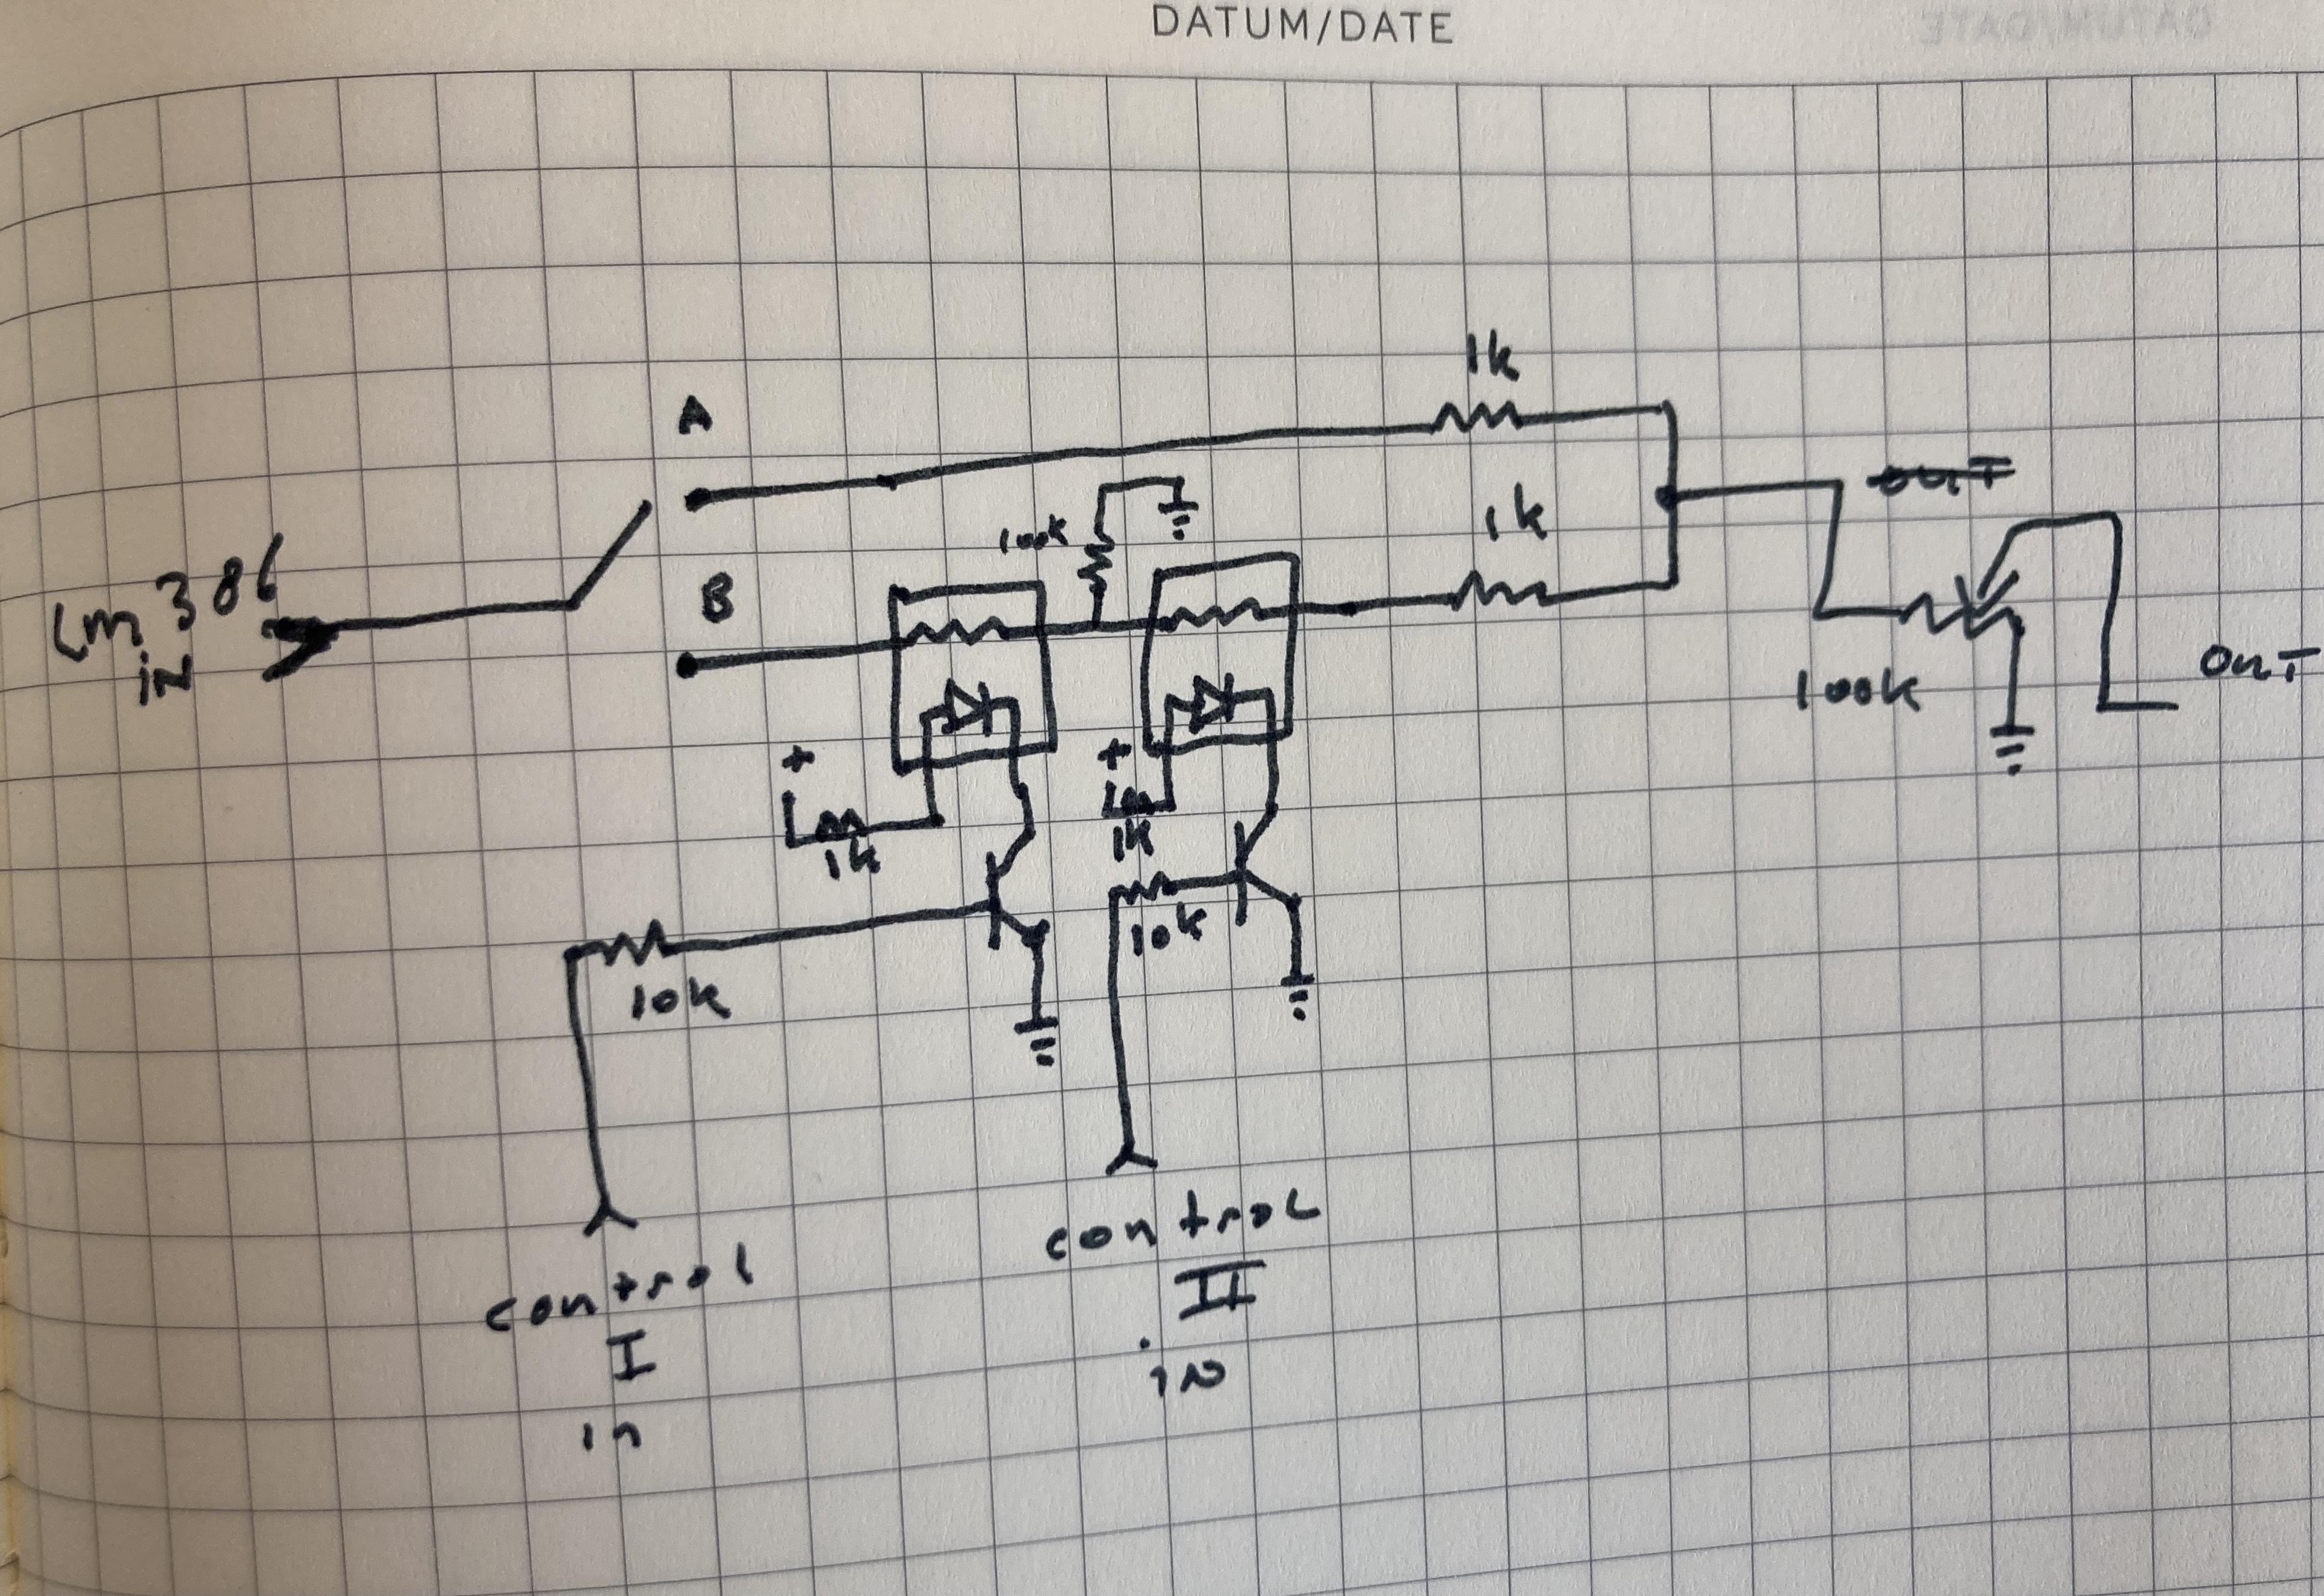 DATUM/DATE
1k
A
OUT
1k
100k
Lm386
in
B
OUT
100k
+
+
1k
1k
10k
10k
control
II
in
control
I
in